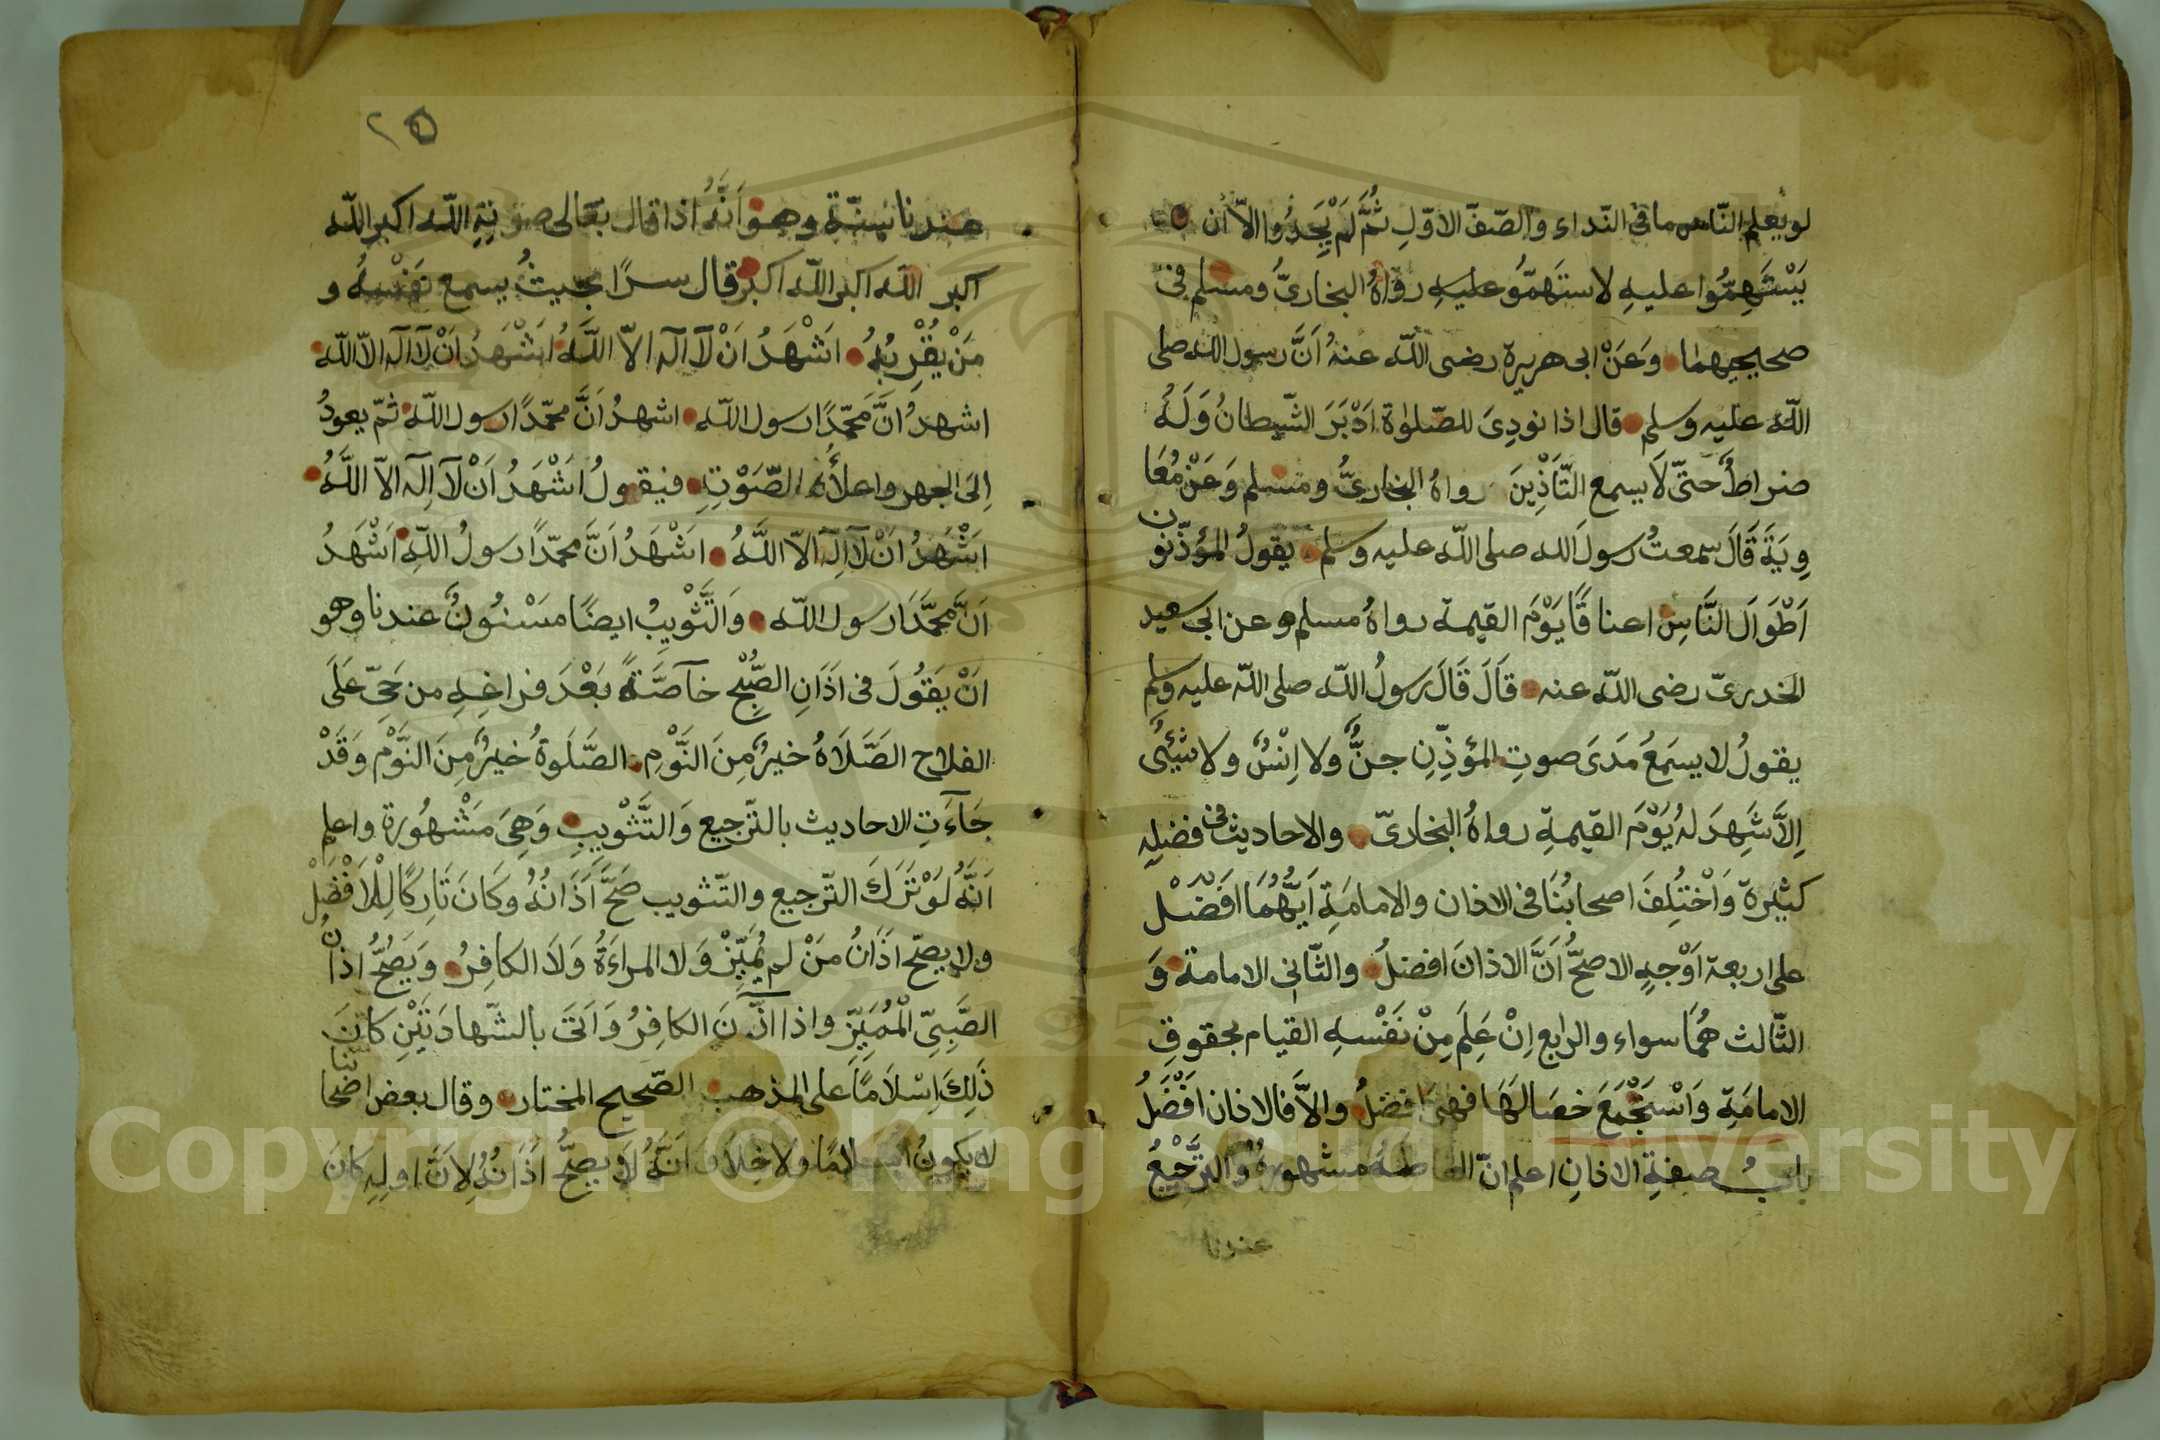 لو يعلم النّاس ما فى النّداء والصّفّ الاوّلِ ثُمَّ لَمْ يَجِدُوا الاّ أن
يَسْتَهِمُّوا عليهِ لاستَهمُّو عليهِ رَوَاهُ البخارىُّ ومسلم فى
صحايحيهما وَعَنْ ابى هريرة رضى اللّه عنهُ اَنَّ رسول اللّه صلى
اللّه عليه وسلم قال اذا نودِىَ للصّلوٰة اَدْبَرَ الشّيطانُ وَلَهُ
ضراطٌ حتىّ لَا يسمع التّاَذْينَ رواهُ البخارىُّ ومسلم وَعَنْ مُعَا
وِيَةَ قَالَ سمعتُ رسولَ اللّه صلى اللّه عليه وسلم يقولُ المؤذّنون
اَطْوَالَ النَّاسِ اعناقًا يَوْمَ القيمة رواهُ مسلم وعن ابى سعيد
الخدرىّ رضى اللّه عنه قَالَ قَالَ رسولُ اللّه صلى اللّه عليه وسلم
يقولُ لا يسمَعُ مَدَىَ صوتِ المؤذِّنِ جنٌّ ولا اِنْسٌ ولا شيْئٌ
اِلاَّ شَهِدَ لهُ يَوْمَ القيمةِ رواهُ البخارىّ والاحاديث فى فضلِهِ
كثيرة وَاْختُلِفَ اصحابُنَا فى الاذان والامامَةِ اَيُّهُمَا افَضَل
على اربعة اَوْجهٍ الاصحُّ اَنَّ الاذانَ افضلُ والثّانى الامامة وَ
الثّالث هُمَا سواء والرابع اِنْ عَلِمَ مِنْ نَفْسهِ القيام بحقوقِ
الامامَةِ وَاسْتجْمَعَ خصَالَهَا فهىَ افضلُ والاَّ فالاذان اَفْضَلُ
بابُ صفةِ الاذانِ اعلم انّ الفاظهُ مشهورةٌ والترَّجْيعُ
عندنا
٢٥
عندنا سنّة وهو اَنّهُ اذا قال بعَالى صوتِهِ اللّه اكبر اللّه
اكبر اللّه اكبر اللّه اكبر قال سرًا بحيثُ يسمع نَفْسهُ و
مَنْ يُقْرِبُهُ اشْهَدُ انْ لآ آله الاّ اللَّهُ اَشْهَدُ اَنْ لآ آله الاّ اللّه
اشهدُ اَنَّ محَمّدًا رسول اللّه اشهدُ اَنَّ محمّدًا رسول اللّه ثمّ يعودُ
اِلىَ الجهر واعلاَءِ الصَّوْتِ فيقولُ اَشْهَدُ اَنْ لآ اِلَه الاّ اللَّهُ
اَشْهَدُ اَنْ لآ اِلَه الاّ اللَّهُ اشْهَدُ اَنَّ محمّدًا رسولُ اللّهِ اَشْهَدُ
اَنَّ محمَّدًا رسول اللّه وَالتَّثْويِبُ ايضًا مَسْنُونٌ عندنا وهو
انْ يَقوُلَ فى اَذَانِ الصُّبْحِ خآصَّةً بَعْدَ فراغِهِ من حَىّ عَلَى
الفلاح الصَّلَاةُ خيرٌ مِنَ النَّوْمِ الصَّلَوةُ خيرٌ مِنَ النَّوْمِ وَقَدْ
جَآءَتِ الاحاديث بالتّرجيع وَالتَّثْويبِ وَهِىَ مَشْهُورة واعلم
اَنَّهُ لَوْ تَرَكَ التّرجيع والتّثويب صَحَّ اَذَانُهُ وكَانَ تَارِكًا لِلْاَفْضَلْ
ولا يصحّ اَذَانُ مَنْ لم يُمَيِّزْ وَلا المراءَةُ وَلَا الكافِرُ وَيَصُحُّ اذانُ
الصَّبِىِّ الْمُمَيِّزِ واذا اذَّنَ الكافِرُ وَاَتَى بالشّهادَتَيْنِ كانَ
ذَلِكَ اِسْلَامًا على المذهب الصّحيح المختار وقال بعض اصْحَابنا
لا يكونُ اسلامًا ولا خِلاَفَ اَنَّهُ لَا يصحُّ اَذَانُهُ لِاَنَّ اولِهِ كانَ
Copyright © King Saud University
1957